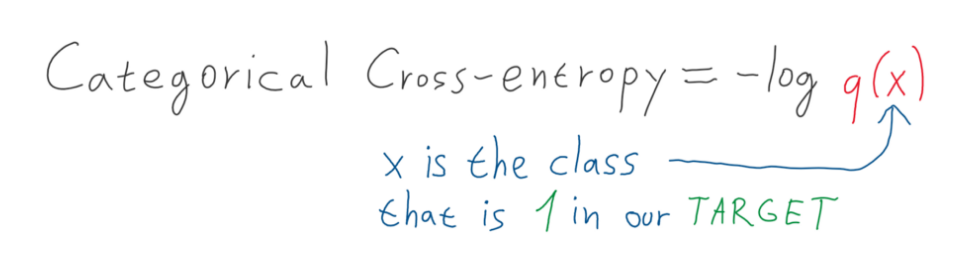 Categorical Cross-entropy = -log q(x)
x is the class
that is 1 in our TARGET